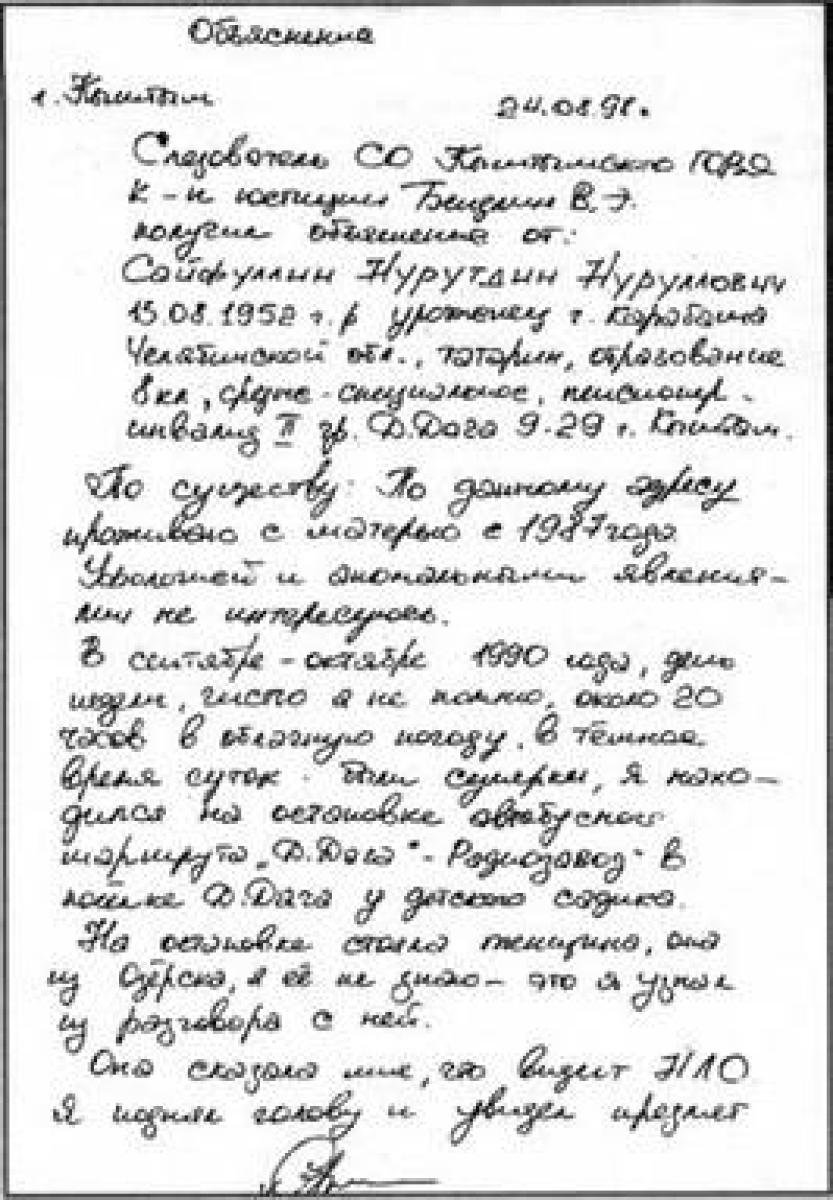 Объяснение
г. Кыштым 24.08.98.
Следователь СО Кыштымского ГОВД
к-н юстиции Бендлин В.Э.
получил объяснение от:
Сайфуллин Нурутдин Нуруллович
15.08.1952 г.р урожденец г. Карабаша
Челябинской обл., татарин, образование
8 кл, средне-специальное, пенсионер -
инвалид II гр. Д.Дага 9-29 г. Кыштым.
По существу: По данному адресу
проживаю с матерью с 1987 года
Уфологией и аномальными явления-
ми не интересуюсь.
В сентябре-октябре 1990 года, день
недели, число я не помню, около 20
часов в облачную погоду, в темное
время суток. были сумерки, я нахо-
дился на остановке автобусного
маршрута „Д.Дага" - Радиозавод" в
посёлке Д.Дага у детского садика.
На остановке стояла женщина, она
из Озёрска, я её не знаю - это я узнал
из разговора с ней.
Она сказала мне, что видит НЛО
Я поднял голову и увидел предмет